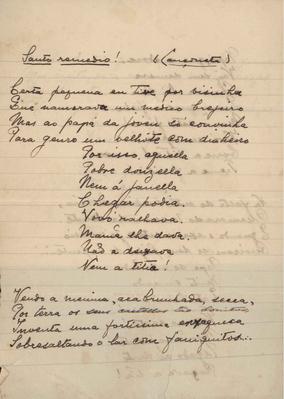 Santo remedio! (Cançoneta)
Certa pequena eu tive por visinha
Que namorava um medico brejeiro
Mas ao papá da joven só convinha
Para genro um velhito com dinheiro
Por isso, aquella
Pobre donzella
Nem á janella
Chegar podia.
Vóvó ralhava.
Mamã lhe dava.
Não a deixava
Nem a titia!
Vendo a menina, acabrunhada, secca,
Por terra os seus castellos tão bonitos
Inventa uma fortissima enxaqueca
Sobresaltando o lar com faniquitos...